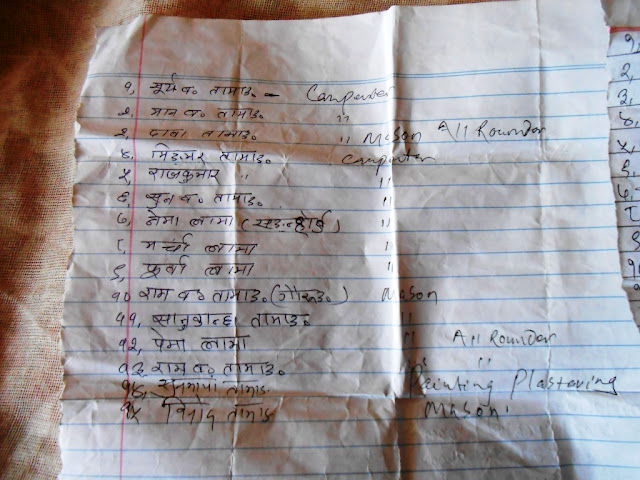 १, सूर्य व० तामाङ. - Carpenter
२, मान व० तामाङ. "
३, बावा तामाङ. " Mason All Rounder
४, मिङमर तामाङ. Carpenter
५, राजकुमार " "
६, सुन व० तामाङ. "
७, नेमा लामा ( ) "
८, मर्चा लामा "
९, फूर्वा लामा "
१० राम व० तामाङ. ( ) Mason
११, सानुकान्छा तामाङ. "
१२, पेमा लामा " All Rounder
१३, राम व० तामाङ. " "
१४, तामाङ Painting Plastering
१५ विनोद तामाङ Mason